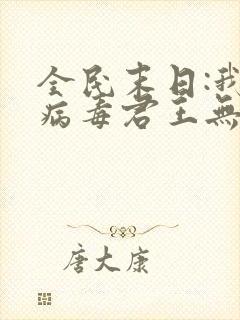 全民末日:我
病毒君王無
唐大康